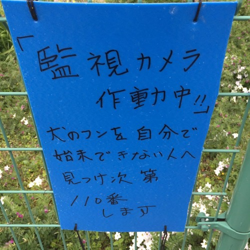 「監視カメラ
作動中!!」
犬のフンを自分で
始末できない人へ
見つけ次第
110番
します